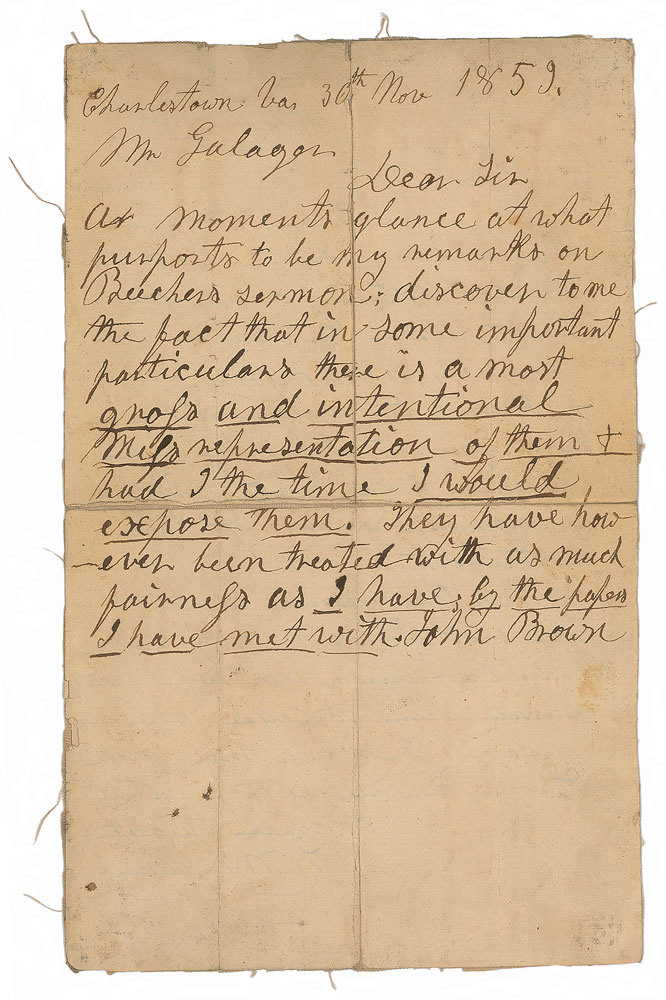 Charlestown Va, 30th Nov 1859.
Mr Galager
Dear Sir
A moments glance at what
purports to be my remarks on
Beechers sermon; discover to me
the fact that in some important
particulars there is a most
gross and intentional
Missrepresentation of them &
had I the time I would
expose them. They have how
-ever been treated with as much
fairness as I have, by the papers
I have met with. John Brown